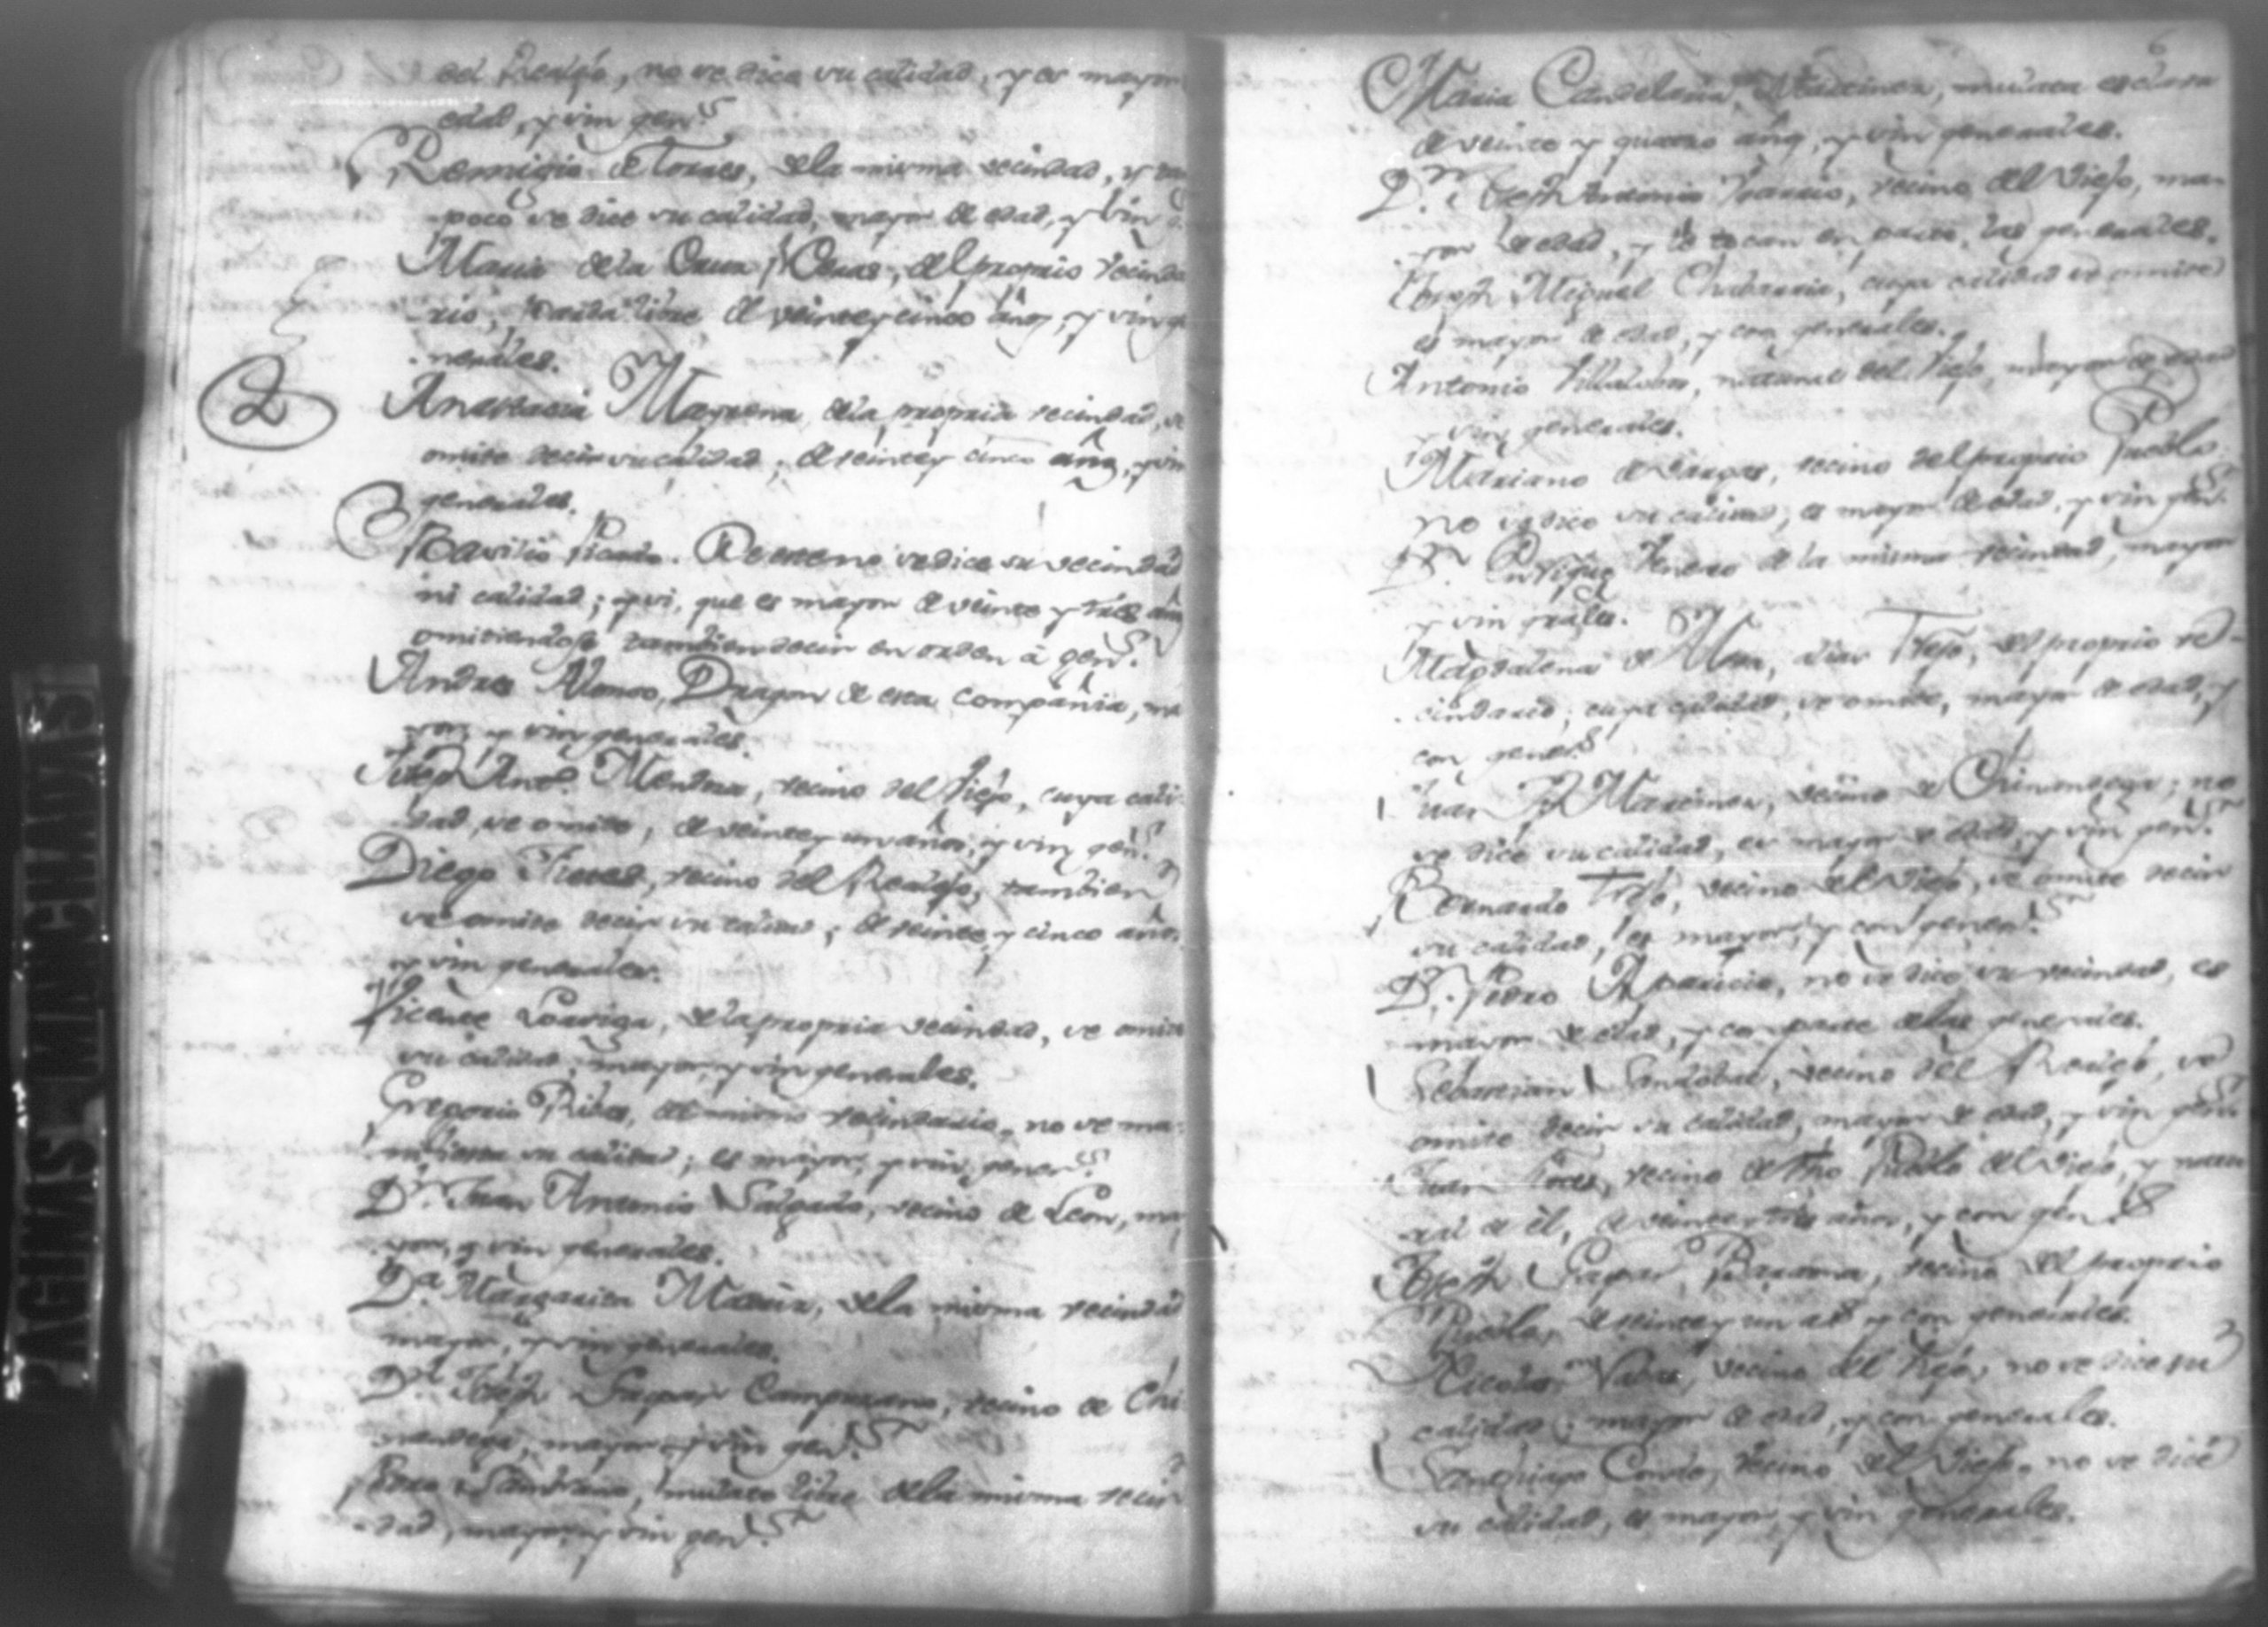 del Realejo, no se dice su calidad, y es mayor
edad, y sin gen.s
Remigia de Torres, de la misma vecindad, y tam
poco se dice su calidad, mayor de edad, y sin
Maria de la Cruz, del proprio vecinda
rio, Parda libre de veinte y cinco años, y sin ge
nerales.
2
Anastacia Mayrena, de la propria vecindad, se
omite decir su calidad; de veinte y cinco años, y sin
generales.
Basilio Picado. De este no se dice su vecindad
ni calidad; y si, que es mayor de veinte y tres años
omitiendose tambien decir en orden á gen.s
Andres Alonso, Dragon de esta compañia, ma
yor, y sin generales.
Joseph Ant.o Mendoza, vecino del Viejo, cuya cali
dad, se omite; de veinte y un años, y sin gen.s
Diego vecino del Realejo, tambien
se omite decir su calidad; de veinte y cinco años
y sin generales.
Vicente Loaisiga, de la propria vecindad, se omite
su calidad; mayor, y sin generales.
Gregorio Ribas, del mismo vecindario, no se ma
nifiesta su calidad; es mayor, y sin gener.s
D.n Juan Antonio Salgado, vecino de Leon, ma
yor, y sin generales.
D.a Margarita Maria, de la misma vecindad
mayor, y sin generales.
D.n Joseph Gaspar Campuzano, vecino de Chi
nandega, mayor y sin gen.s
mulato libre de la misma vecin
dad, mayor, y sin gen.s
6
Maria Candelaria Martinez, mulata esclava
de veinte y quatro años, y sin generales.
D.n Joseph Antonio vecino del Viejo, ma
yor de edad, y le tocan en parte, las generales.
Joseph Miguel Chabarria, cuya calidad se omite
es mayor de edad, y con generales.
Antonio Villalobos, natural del Viejo, mayor de edad
y sin generales.
Mariano de Vargas, vecino del proprio Pueblo
no se dice su calidad, es mayor de edad, y sin gen.s
D.n Enrique de la misma vecindad, mayor
y sin grales.
Magdalena de Mesa, alias Trejo, del proprio ve
cindario; cuya calidad, se omite, mayor de edad, y
con gener.s
Juan Martinez, vecino de Chinandega; no
se dice su calidad, es mayor de edad, y sin gen.s
Bernardo Trejo, vecino del Viejo, se omite decir
su calidad, es mayor, y con gener.s
D.n Pedro Aparicio, no se dice su vecindad, es
mayor de edad, y con parte de las generales.
Sebastian Sandobal, vecino del Realejo, se
omite decir su calidad, mayor de edad, y sin gen.s
Juan vecino de dho Pueblo del Viejo, y natu
ral de él, de veinte y tres años, y con gen.s
Joseph Gaspar Baraona, vecino del proprio
Pueblo, de veinte y un a.s y con generales.
Nicolas vecino del Viejo, no se dice su
calidad; mayor de edad, y con generales.
Santhiago Conde, vecino del Viejo, no se dice
su calidad, es mayor, y sin generales.
PAGINAS MANCHADAS